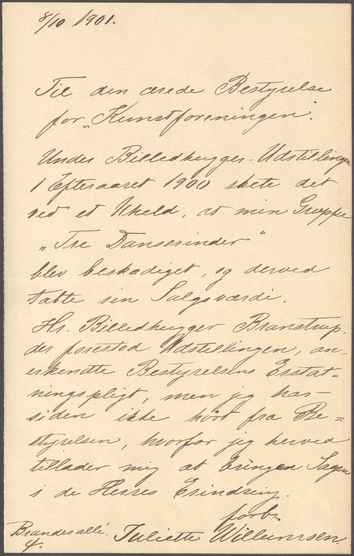 8/10 1901.
Til den ærede Bestyrelse
for „Kunstforeningen".
Under Billedhugger-Udstillingen
i Efteraaret 1900 skete det
ved et Uheld, at min Gruppe
„Tre Danserinder"
blev beskadiget, og derved
tabte sin Salgsværdi.
Hr. Billedhugger Brandstrup,
der forestod Udstillingen, an-
erkendte Bestyrelsens Erstat-
ningspligt, men jeg har
siden ikke hört fra Be=
styrelsen, hvorfor jeg herved
tillader mig at bringe Sagen
i de Herres Erindring.
forb.
Juliette Willumsen.
Brandesallé
4.